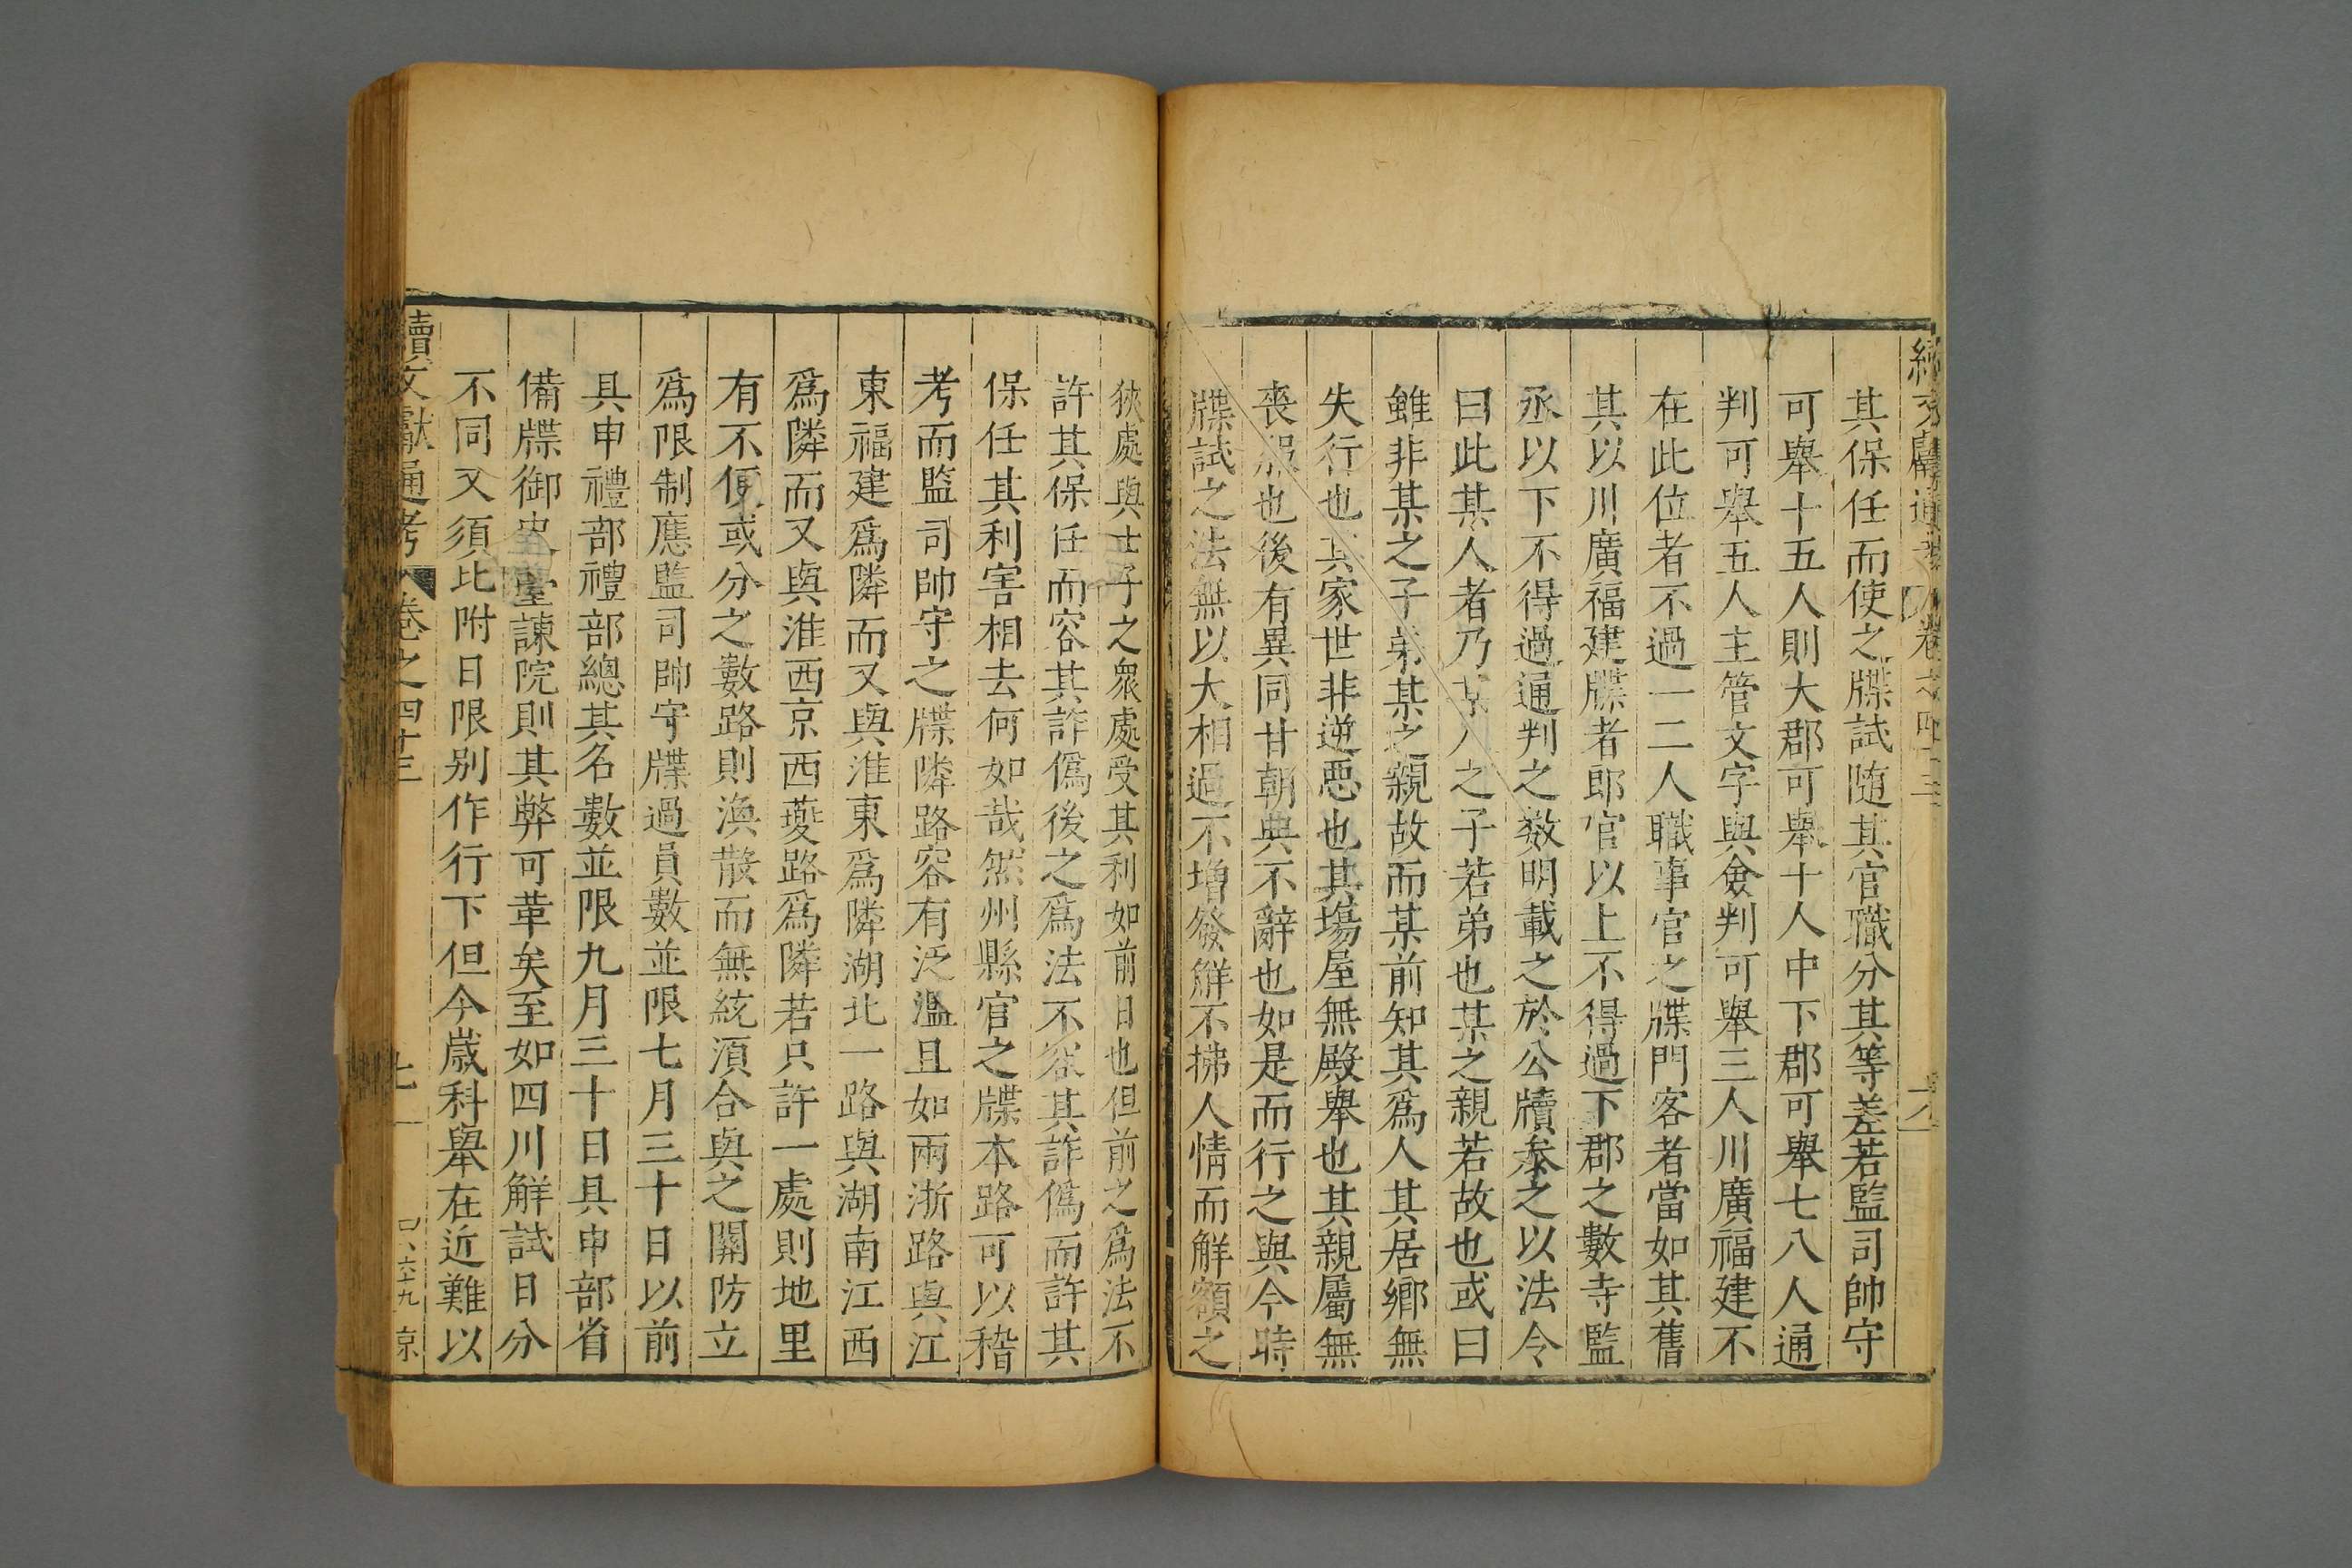 續文獻通考 卷之四十三
其保任而使之牒試随其官職分其等差若監司帥守
可舉十五人則大郡可舉十人中下郡可舉七八人通
判可舉五人主管文字與僉判可舉三人川廣福建不
在此位者不過一二人職事官之牒門客者當如其舊
其以川廣福建牒者郎官以上不得過下郡之數寺監
丞以下不得過通判之數明載之於公牘叅之以法令
曰此其人者乃某人之子若弟也某之親若故也或曰
雖非某之子弟某之親故而某前知其爲人其居鄉無
失行也其家世非逆惡也其塲屋無殿舉也其親屬無
喪服也後有異同甘朝典不辭也如是而行之與今時
牒試之法無以大相過不增發解不拂人情而解額之
狹處與士子之衆處受其利如前日也但前之爲法不
許其保任而容其詐僞後之爲法不容其詐僞而許其
保任其利害相去何如哉然州縣官之牒本路可以稽
考而監司帥守之牒隣路容有泛濫且如兩浙路與江
東福建爲隣而又與淮東爲隣湖北一路與湖南江西
爲隣而又與淮西京西夔路爲隣若只許一處則地里
有不便或分之數路則渙散而無統須合與之關防立
爲限制應監司帥守牒過員數並限七月三十日以前
具申禮部禮部總其名數並限九月三十日具申部省
備牒御史臺諫院則其弊可革矣至如四川解試日分
不同又須比附日限别作行下但今歲科舉在近難以
續文獻通考 卷之四十三 七 六十九 京